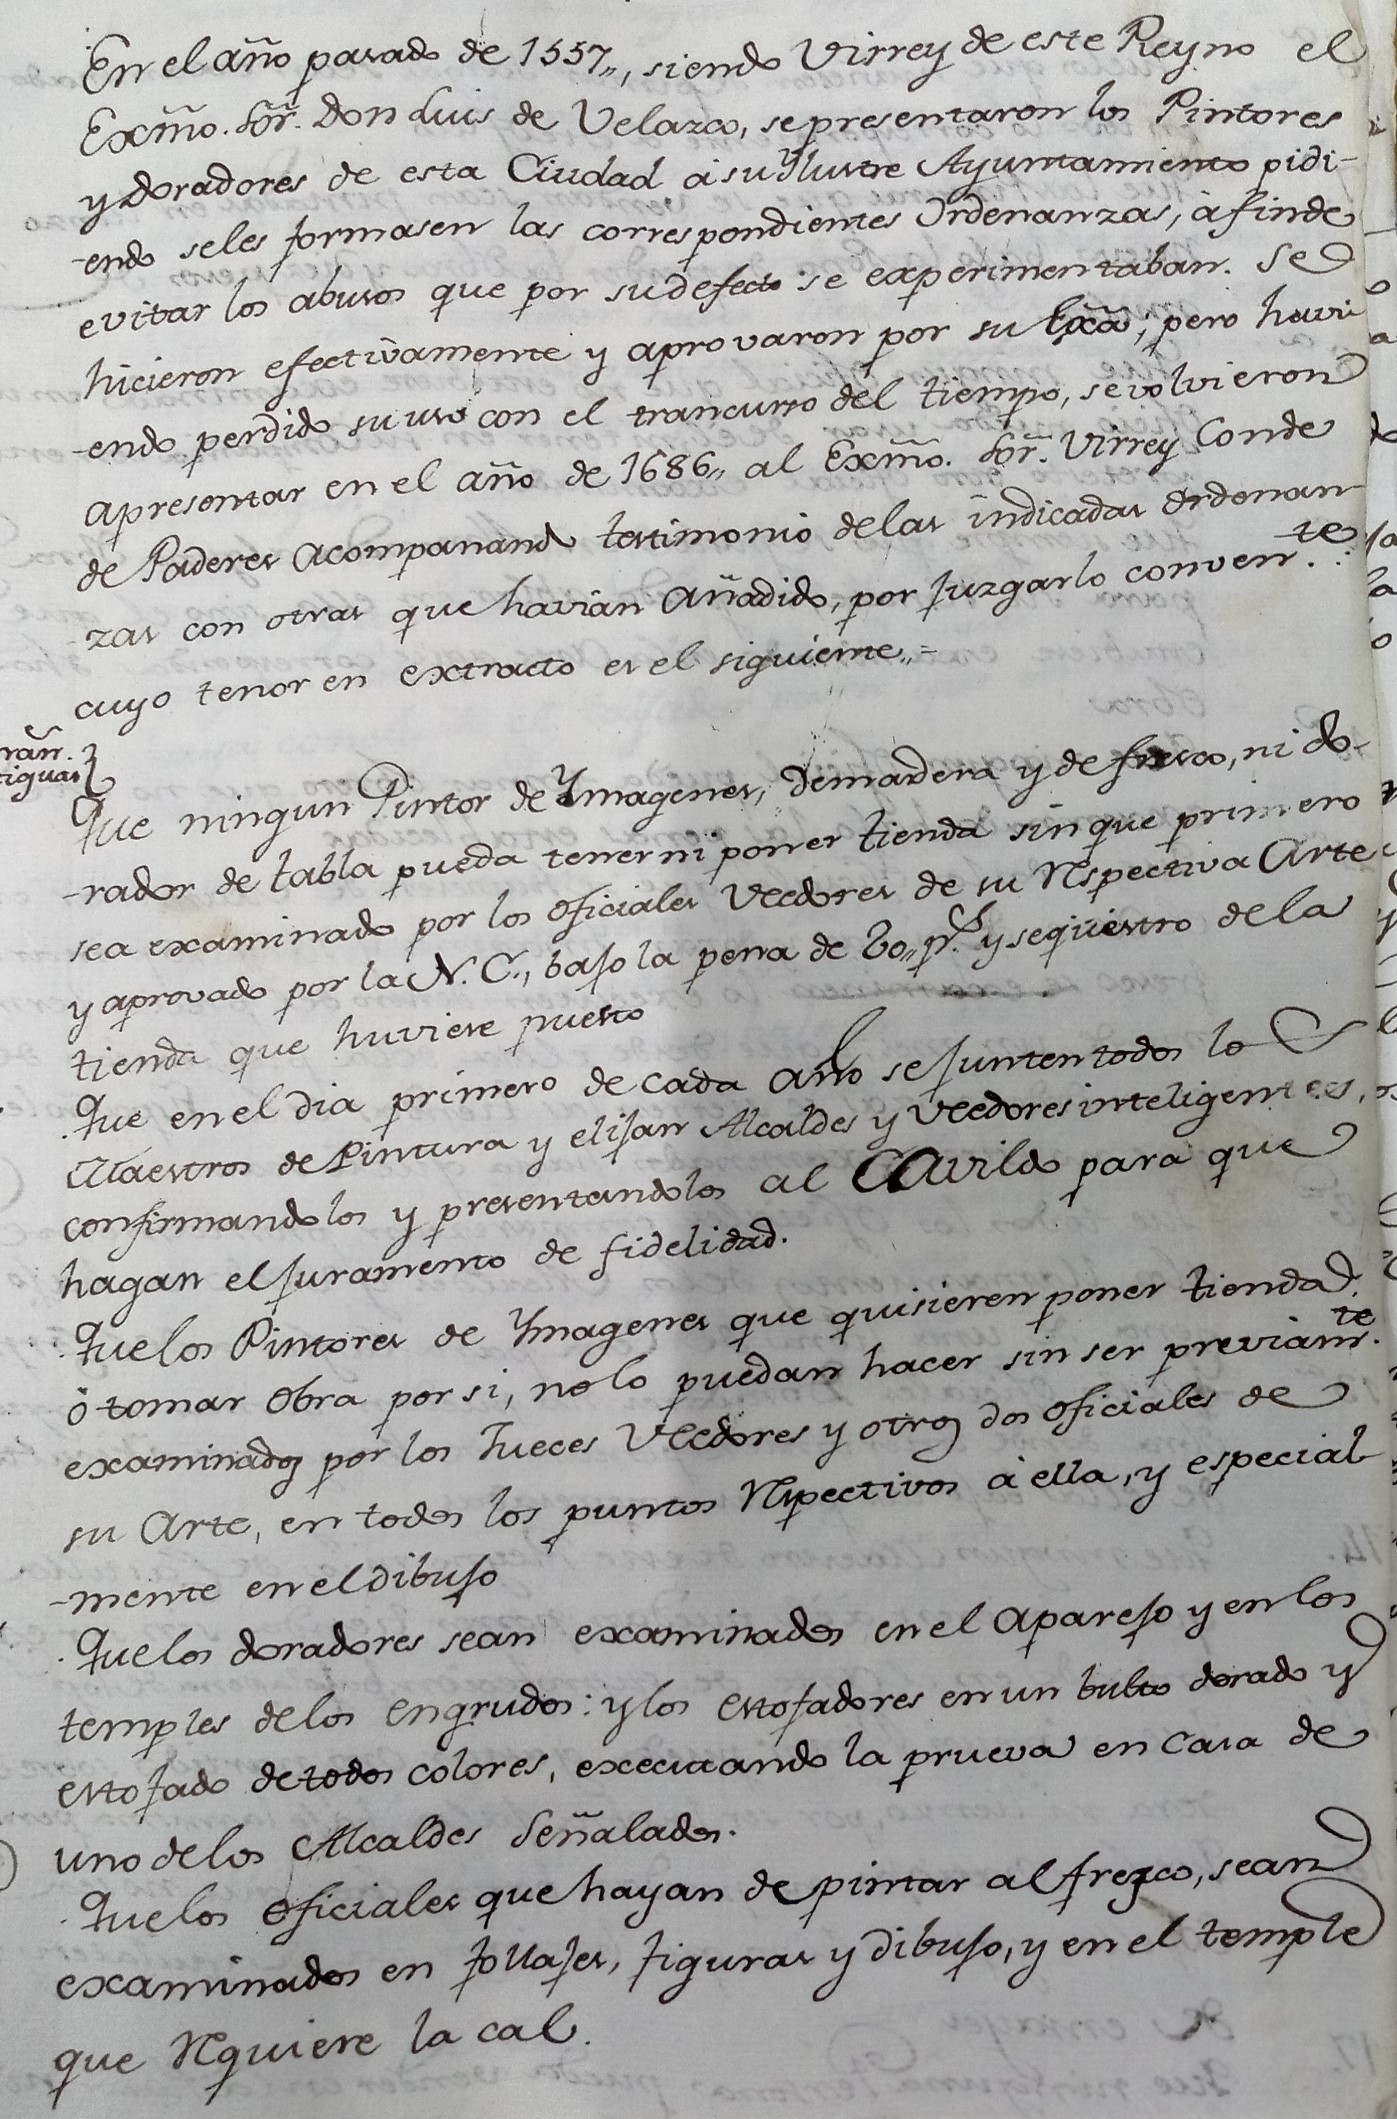 En el año pasado de 1557,, siendo Virrey de este Reyno el
Exm̃o. Sõr. Don Luis de Velazco, se presentaron los Pintores
y Doradores de esta Ciudad á su Ylustre Ayuntamiento pidi-
-endo se les formasen las correspondientes Ordenanzas, á fin de
evitar los abusos que por su defecto se experimentaban. Se
hicieron efectivamente y aprovaron por su Exc̃a; pero havi
-endo perdido su uso con el trancurso del tiempo, se volvieron
apresentar en el año de 1686,, al Exm̃o. Sõr. Virrey Conde
de Paderes acompanando testimonio de las indicadas ordenan
zas con otras que havian añadido, por juzgarlo convenᵗᵉ.
cuyo tenor en extracto es el siguiente,,=
rañ.
tiguas
Que ningun Pintor de Ymagenes, demardera y de fresco, ni do-
-rador de tabla pueda tener ni poner tienda sin que primero
sea examinado por los oficiales Veedores de su Respectiva Arte
y aprovado por la N. C., bajo la pena de 20,, pˢ. y seqüestro de la
tienda que huviese puesto
Que en el dia primero de cada año se junten todos los
Maestros de Pintura y elijan Alcaldes y Veedores inteligentes,
confirmandolos y presentandolos al Cavildo para que
hagan el juramento de fidelidad.
Que los Pintores de Ymagenes que quisieren poner tienda
ó tomar obra por si, no lo puedan hacer sin ser previamᵗᵉ.
examinados por los Jueces Veedores y otros dos oficiales de
su Arte, en todos los puntos Respectivos á ella, y especial
-mente en el dibujo
Que los doradores sean examinados en el aparejo y en los
temples de los engrudos: y los estofadores en un bulto dorado y
estofado de todos colores, executando la prueva en casa de
uno de los Alcaldes Señalados.
Que los oficiales que hayan de pintar al frezco, sean
examinados en follajes, figuras y dibujo, y en el temple
que Requiere la cal.